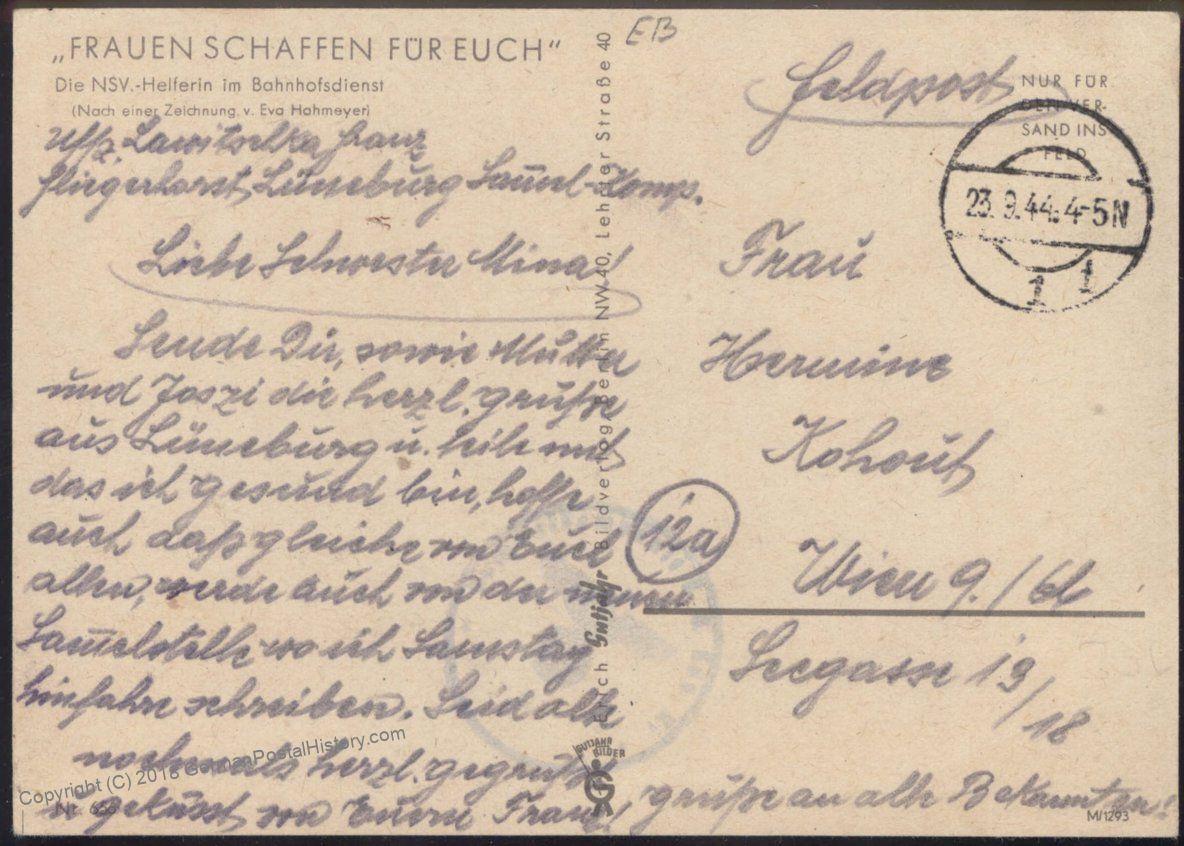 „FRAUEN SCHAFFEN FÜR EUCH“
Die NSV.-Helferin im Bahnhofsdienst
(Nach einer Zeichnung v. Eva Hahmeyer)
Uffz. Lawitschka Franz
Fliegerhorst, Lüneburg Sam̄el-Komp.
Liebe Schwester Mina!
Sende Dir, sowie Mutter
und Joszi die herzl. Grüße
aus Lüneburg u. teile mit
das ich gesund bin, hoffe
auch daß gleiche von Euch
allen, werde auch von der neuen
Sam̄elstelle wo ich Samstag
hinfahre schreiben. Seid alle
nochmals herzl. gegrüßt
u. geküsst von Eurem Franz!
grüße an alle Bekannten!
EB
Feldpost
NUR FÜR
DEN VER-
SAND INS
FELD
23.9.44.4-5N
1 1
Frau
Hermine
Kohout
12a
Wien 9./66
Seegasse 19/18
Erich Gutjahr Bildverlag, Berlin NW 40, Lehrter Straße 40
GUTJAHR
BILDER
Nr. 653
M/1293
Copyright (C) 2018 GermanPostalHistory.com